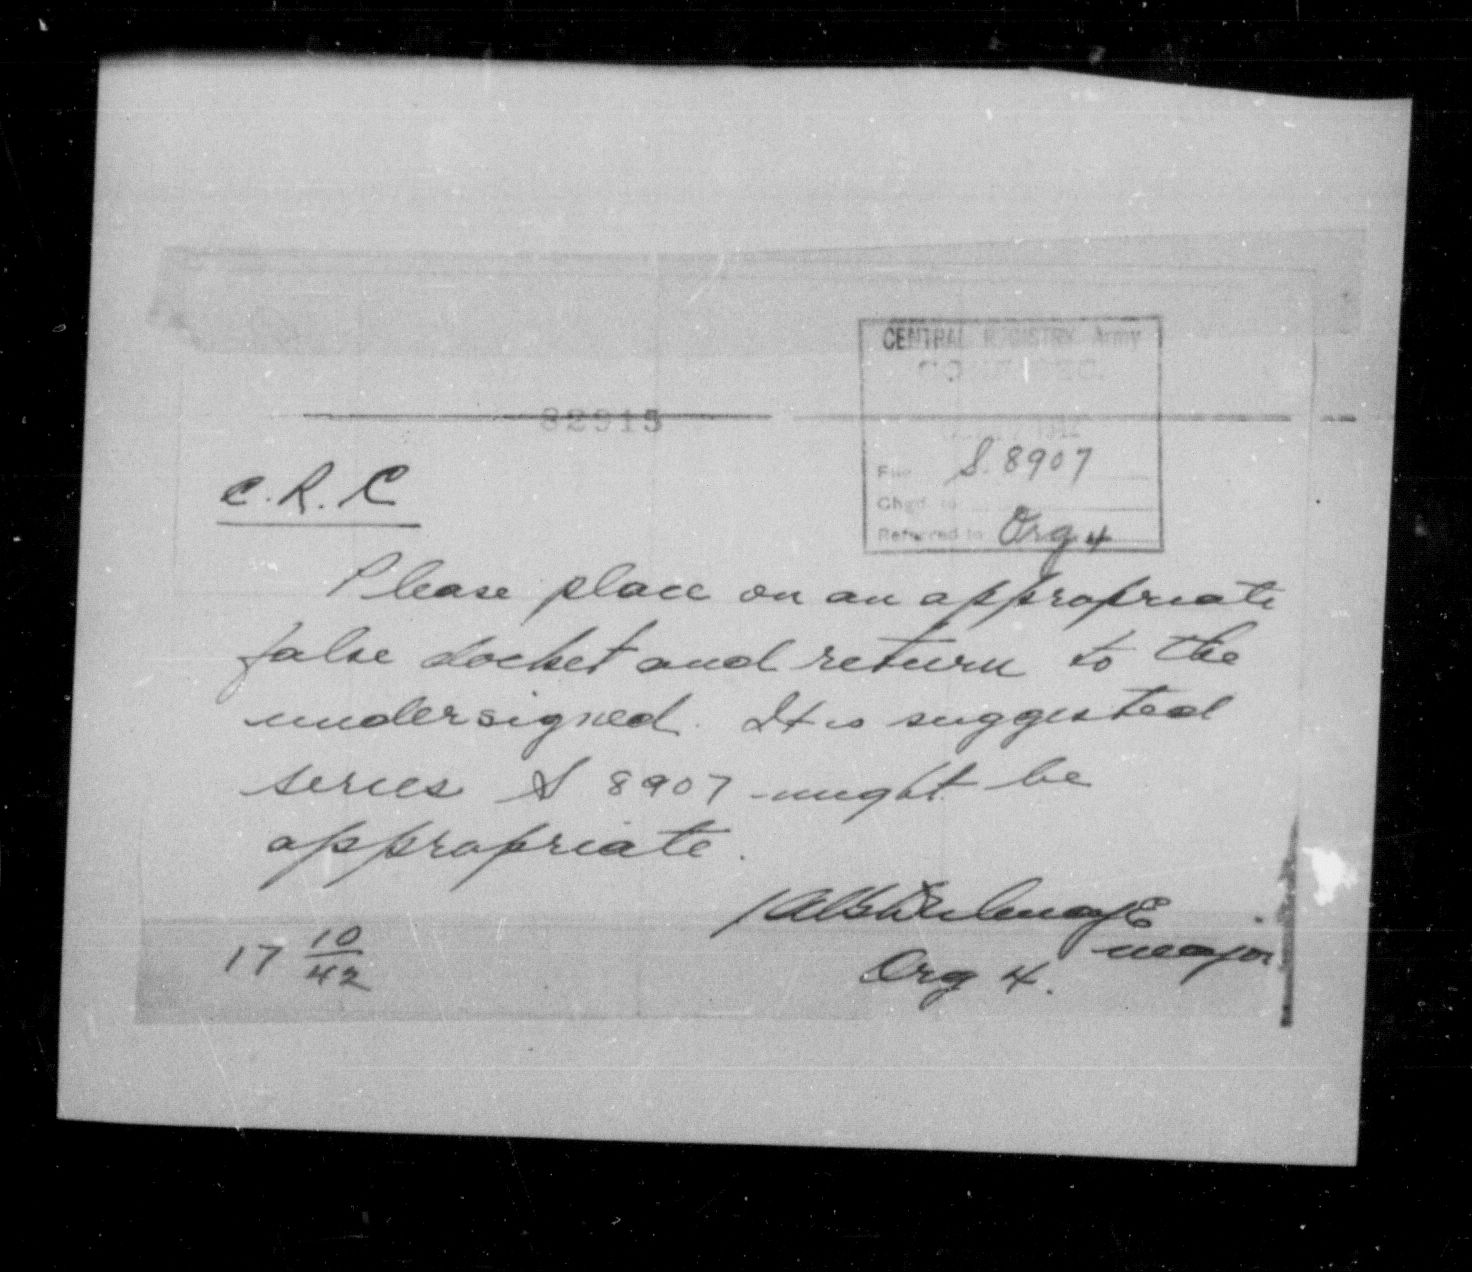 CENTRAL REGISTRY Army
82915
File S. 8907
Chgd to
Referred to Org 4
C.R.C
Please place on an appropriate
false docket and return to the
undersigned. It is suggested
series S 8907 might be
appropriate.
Major
Org 4.
17 10/42